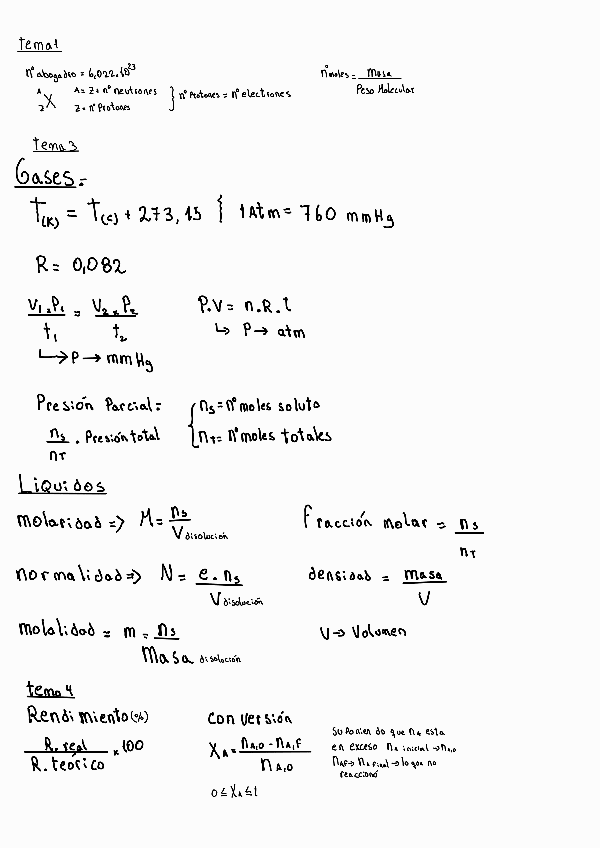 tema1
nº abogadro = 6,022.10²³
nº moles = masa / Peso Molecular
A Z X
A = Z + nº neutrones
Z = nº Protones
} nº Protones = nº electrones
tema 3
Gases =
T(K) = T(C) + 273,15 { 1 Atm = 760 mmHg
R = 0,082
V₁ . P₁ / t₁ = V₂ x P₂ / t₂
↳ P → mmHg
P.V = n.R.t
↳ P → atm
Presión Parcial =
ns / nT . Presión total
{ ns = nº moles soluto
nT = nº moles totales
Liquidos
molaridad => M = ns / V disolución
Fracción molar = ns / nT
normalidad => N = e . ns / V disolución
densidad = masa / V
molalidad = m = ns / Masa disolución
V → Volumen
tema 4
Rendimiento (%)
R. real / R. teórico x 100
Conversión
XA = nA,0 - nA,F / nA,0
0 ≤ XA ≤ 1
Suponiendo que nA esta
en exceso nA inicial → nA,0
nAF → nA final → lo que no
reaccionó